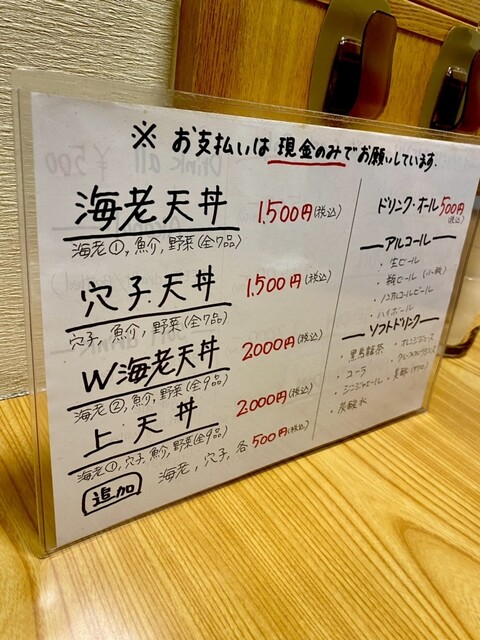 ※ お支払いは現金のみでお願いしています.
海老天丼 1.500円(税込)
海老①,魚介,野菜(全7品)
穴子天丼 1.500円(税込)
穴子,魚介,野菜(全7品)
W海老天丼 2000円(税込)
海老②,魚介,野菜(全9品)
上天丼 2000円(税込)
海老①,穴子,魚介,野菜(全9品)
追加 海老,穴子,各500円(税込)
ドリンク・オール500円
(税込)
アルコール
・生ビール
・瓶ビール(小瓶)
・ノンアルコールビール
・ハイボール
ソフトドリンク
・黒烏龍茶 ・オレンジジュース
・コーラ
・ジンジャエール
・炭酸水
Drink all ¥500